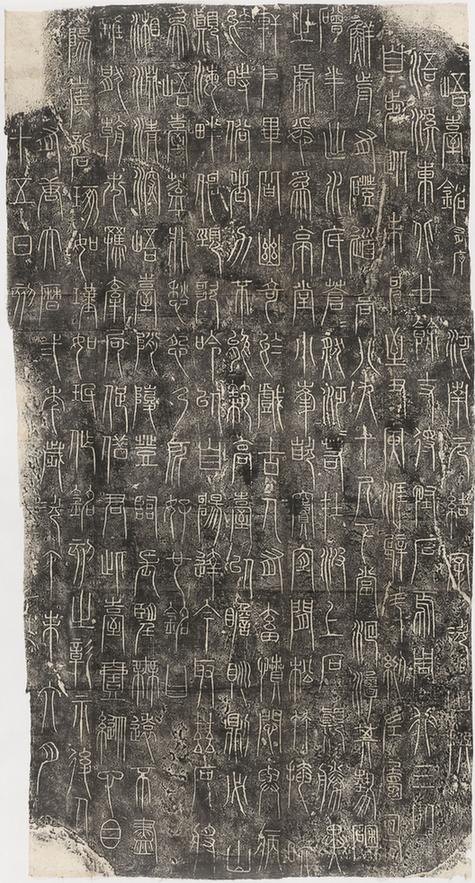 峿臺銘有序 河南元結字次山撰
浯溪東北廿餘丈得怪石焉周行三四
百步從未申至丑寅涯壁斗絕左屬回
鮮前有磴道高八九十尺下當洄潭其勢碅
磳半出水底蒼然泛泛若在波上石巔勝異
之處悉為亭堂小峰嵌竇宜間松竹掩映
軒戶畢皆幽奇於戲古人有畜憤悶與病
於時俗者力不能築高臺以瞻眺則必山
顛海畔伸頸歌吟以自暢達今取茲石將
為峿臺蓋非愁怨乃所好也銘曰
湘淵清深峿臺陗陵登臨長望無遠不盡
誰厭朝市羈牽局促借君此臺壹縱心目
陽崖礱琢如瑾如珉作銘刻之彰示後人
有唐大曆二年歲次丁未六月
十五日刻